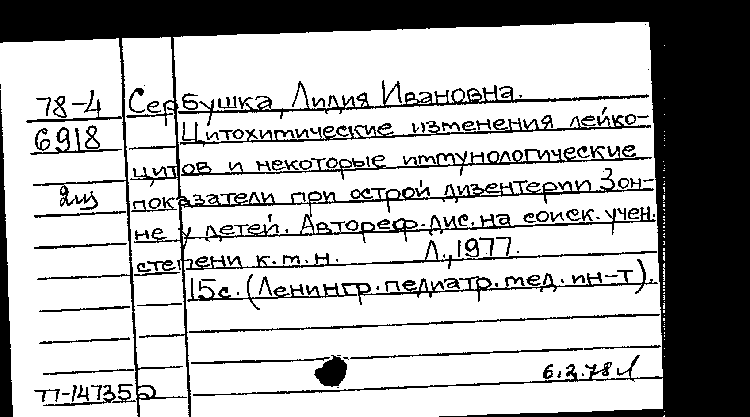 78-4 Сербушка, Лидия Ивановна.
6918 Цитохимические изменения лейко-
цитов и некоторые иммунологические
2цз показатели при острой дизентерии Зон-
не у детей. Автореф. дис. на соиск. учен.
степени к.м.н. Л., 1977.
15с. (Ленингр. педиатр. мед. ин-т).
6.2.78
77-14735